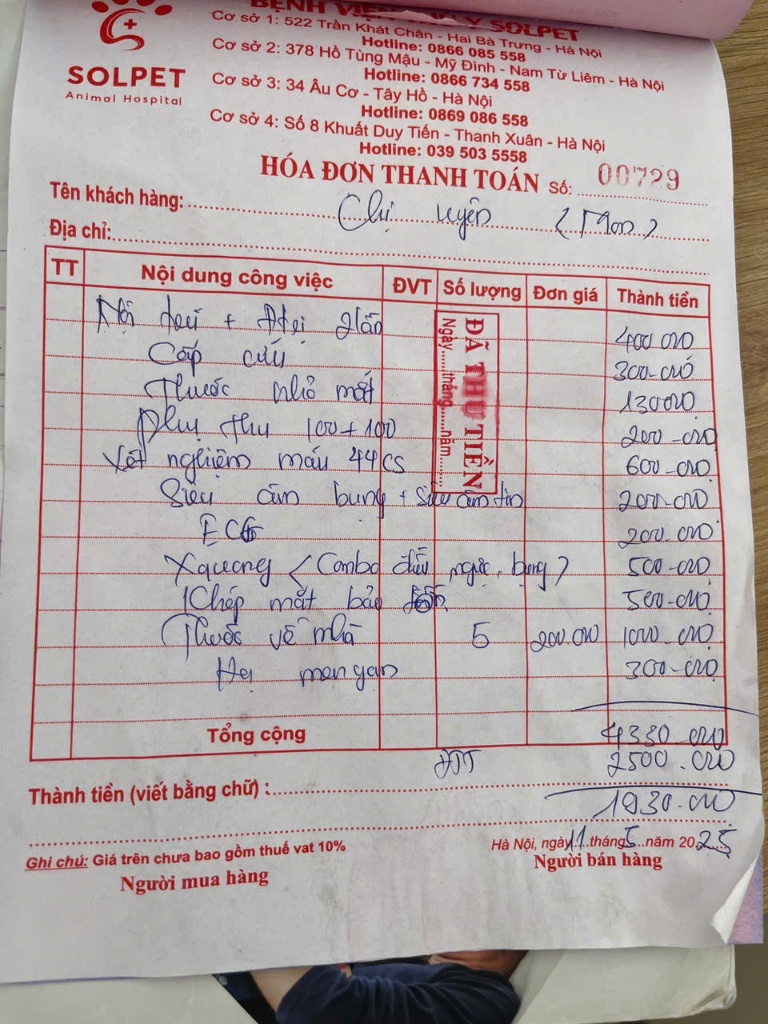 BỆNH VIỆN THÚ Y SOLPET
Cơ sở 1: 522 Trần Khát Chân - Hai Bà Trưng - Hà Nội
Hotline: 0866 085 558
Cơ sở 2: 378 Hồ Tùng Mậu - Mỹ Đình - Nam Từ Liêm - Hà Nội
Hotline: 0866 734 558
Cơ sở 3: 34 Âu Cơ - Tây Hồ - Hà Nội
Hotline: 0869 086 558
Cơ sở 4: Số 8 Khuất Duy Tiến - Thanh Xuân - Hà Nội
Hotline: 039 503 5558
SOLPET
Animal Hospital
HÓA ĐƠN THANH TOÁN Số: 00729
Tên khách hàng: Chị Uyên (Mon)
Địa chỉ:
TT Nội dung công việc ĐVT Số lượng Đơn giá Thành tiền
Nội trú + 400 000
Cấp cứu 300.000
Thuốc nhỏ mắt 130000
Phụ thu 100+100 200.000
Xét nghiệm máu 44cs 600.000
Siêu âm bụng + Siêu âm tim 200.000
ECG 200.000
Xquang (Combo đầu, ngực, bụng) 500.000
Khép mắt bảo 500.000
Thuốc về nhà 5 200.000 1000.000
300.000
ĐÃ THU TIỀN
Ngày......tháng......năm......
Tổng cộng 4330.000
ĐTT 2500.000
Thành tiền (viết bằng chữ) :
1930.000
Ghi chú: Giá trên chưa bao gồm thuế vat 10%
Hà Nội, ngày 11 tháng 5 năm 2025
Người mua hàng
Người bán hàng